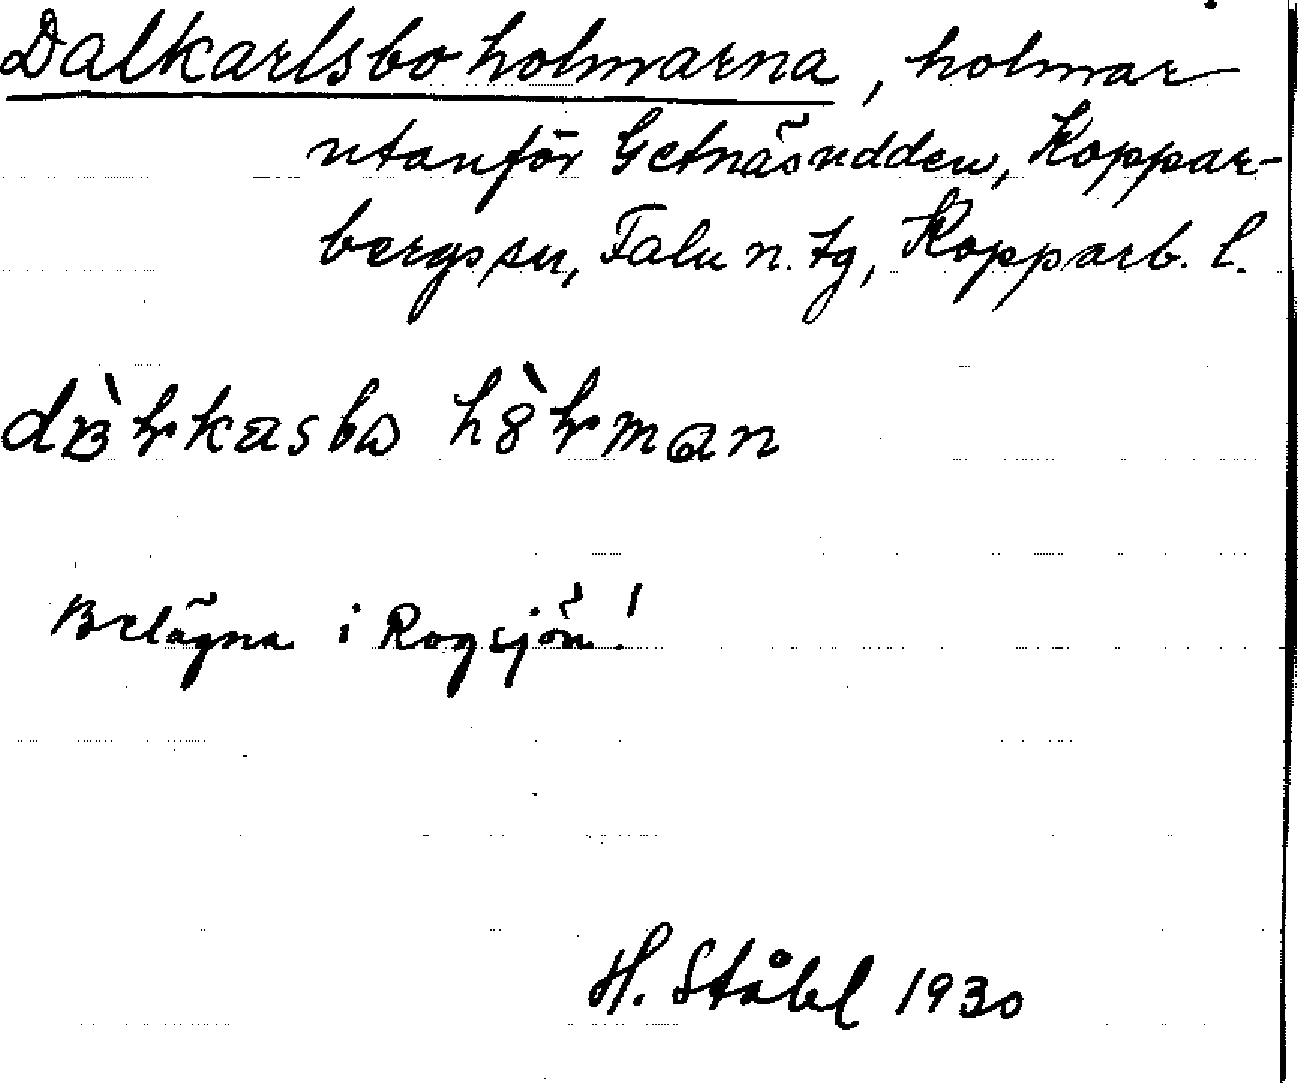 Dalkarlsboholmarna, holmar
utanför Getnäsudden, Koppar-
bergs sn, Falu n. tg, Kopparb. l.
Belägna i Rogsjön!
H. Ståhl 1930